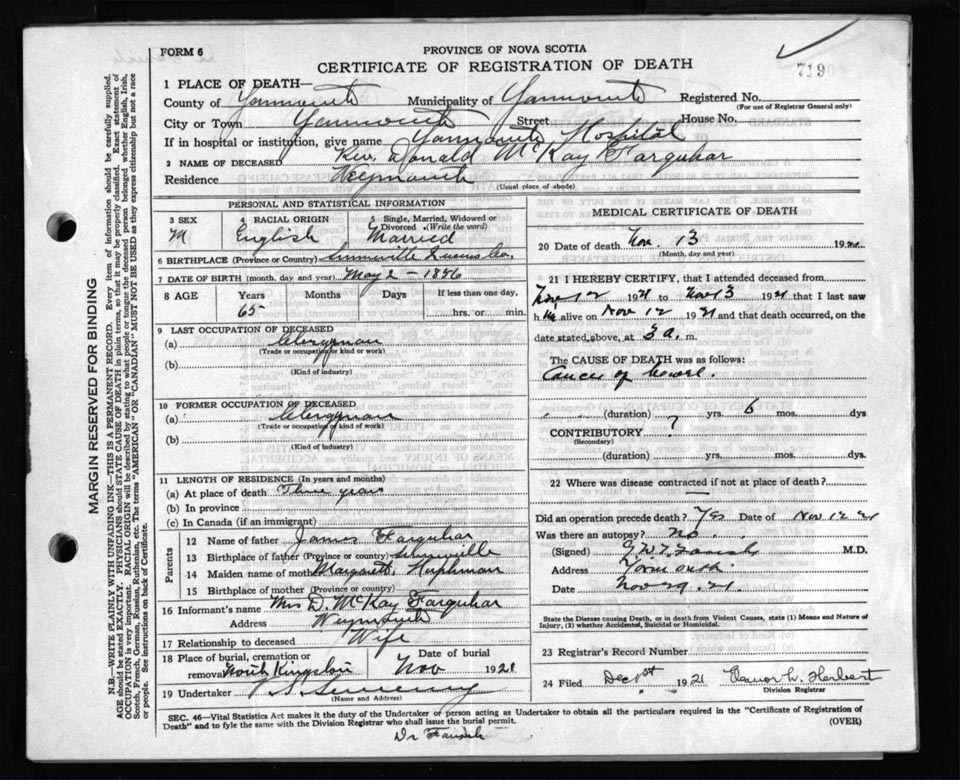 FORM 6
PROVINCE OF NOVA SCOTIA
CERTIFICATE OF REGISTRATION OF DEATH
719
1 PLACE OF DEATH—
County of Yarmouth Municipality of Yarmouth Registered No.
(For use of Registrar General only)
City or Town Yarmouth Street House No.
If in hospital or institution, give name Yarmouth Hospital
2 NAME OF DECEASED Rev. Donald McKay Farquhar
Residence Weymouth
(Usual place of abode)
PERSONAL AND STATISTICAL INFORMATION
3 SEX 4 RACIAL ORIGIN 5 Single, Married, Widowed or Divorced (Write the word)
M English Married
6 BIRTHPLACE (Province or Country) Summerville Queens Co.
7 DATE OF BIRTH (month, day and year) May 2 - 1856
8 AGE Years Months Days If less than one day,
65 hrs. or min.
9 LAST OCCUPATION OF DECEASED
(a) Clergyman
(Trade or occupation or kind or work)
(b)
(Kind of industry)
10 FORMER OCCUPATION OF DECEASED
(a) Clergyman
(Trade or occupation or kind of work)
(b)
(Kind of industry)
11 LENGTH OF RESIDENCE (In years and months)
(a) At place of death Three years
(b) In province
(c) In Canada (if an immigrant)
Parents
12 Name of father James Farquhar
13 Birthplace of father (Province or country) Summerville
14 Maiden name of mother Margaret
15 Birthplace of mother (Province or country)
16 Informant's name Mrs D. McKay Farquhar
Address Weymouth
17 Relationship to deceased Wife
18 Place of burial, cremation or removal North Kingston Date of burial Nov 1921
19 Undertaker Sweeny
(Name and Address)
MEDICAL CERTIFICATE OF DEATH
20 Date of death Nov. 13 192
(Month, day and year)
21 I HEREBY CERTIFY, that I attended deceased from
Nov 12 1921 to Nov 13 1921 that I last saw
h im alive on Nov 12 1921 and that death occurred, on
date stated above, at 3 a. m.
The CAUSE OF DEATH was as follows:
Cancer of bowel.
(duration) yrs. 6 mos. dys
CONTRIBUTORY ?
(Secondary)
(duration) yrs. mos. dys.
22 Where was disease contracted if not at place of death?
Did an operation precede death? Yes Date of Nov 12 21
Was there an autopsy? no
(Signed) Farish M.D.
Address Yarmouth
Date Nov 29. 21.
State the Disease causing Death, or in death from Violent Causes, state (1) Means and Nature of Injury, (2) whether Accidental, Suicidal or Homicidal.
23 Registrar's Record Number
24 Filed Dec 1st 1921 Herbert
Division Registrar
SEC. 46—Vital Statistics Act makes it the duty of the Undertaker or person acting as Undertaker to obtain all the particulars required in the "Certificate of Registration of
Death" and to fyle the same with the Division Registrar who shall issue the burial permit.
(OVER)
Dr Farish
MARGIN RESERVED FOR BINDING
N.B.—WRITE PLAINLY WITH UNFADING INK—THIS IS A PERMANENT RECORD. Every item of information should be carefully supplied.
AGE should be stated EXACTLY. PHYSICIANS should STATE CAUSE OF DEATH in plain terms, so that it may be properly classified. Exact statement of
OCCUPATION is very important. RACIAL ORIGIN will be described by stating to what people or tongue the deceased person belonged whether English, Irish,
Scotch, French, German, Russian, Ruthenian, etc. The terms "AMERICAN" OR "CANADIAN" MUST NOT BE USED as they express citizenship but not a race
or people. See instructions on back of Certificate.